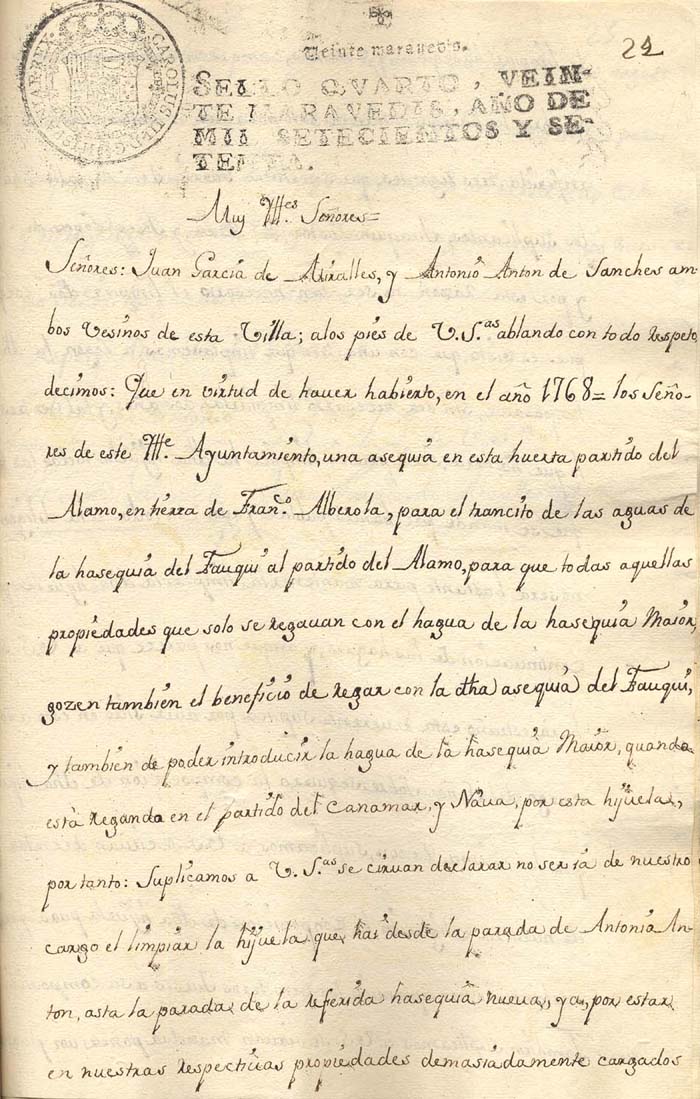 Veinte maravedis.
22
SELLO QVARTO, VEIN-
TE MARAVEDIS, AÑO DE
MIL SETECIENTOS Y SE-
TENTA.
CAROLUS III D G
Muy Ill.es Señores=
Señores: Juan García de Miralles, y Antonio Anton de Sanches am-
bos Vesinos de esta Villa; alos pies de V.S.as ablando con todo Respeto,
decimos: Que en virtud de haver habierto, en el año 1768= los Seño-
res de este Ill.e Ayuntamiento, una asequia en esta huerta partido del
Alamo, en tierra de Fran.co Alberola, para el trancito de las aguas de
la hasequia del Fauqui al partido del Alamo, para que todas aquellas
propiedades que solo se regauan con el hagua de la hasequia Maior,
gozen tambien el beneficio de regar con la dha asequia del Fauqui,
y tambien de poder introducir la hagua de la hasequia Maior, quando
està regando en el partido del Canamar, y Naua, por esta hijuela,
por tanto: Suplicamos a V.S.as se ciruan declarar no ser ia de nuestro
cargo el limpiar la hijuela que hai desde la parada de Antonio An-
ton, asta la parada de la referida hasequia nueua, ya, por estar
en nuestras respectiuas propiedades demasiadamente cargados